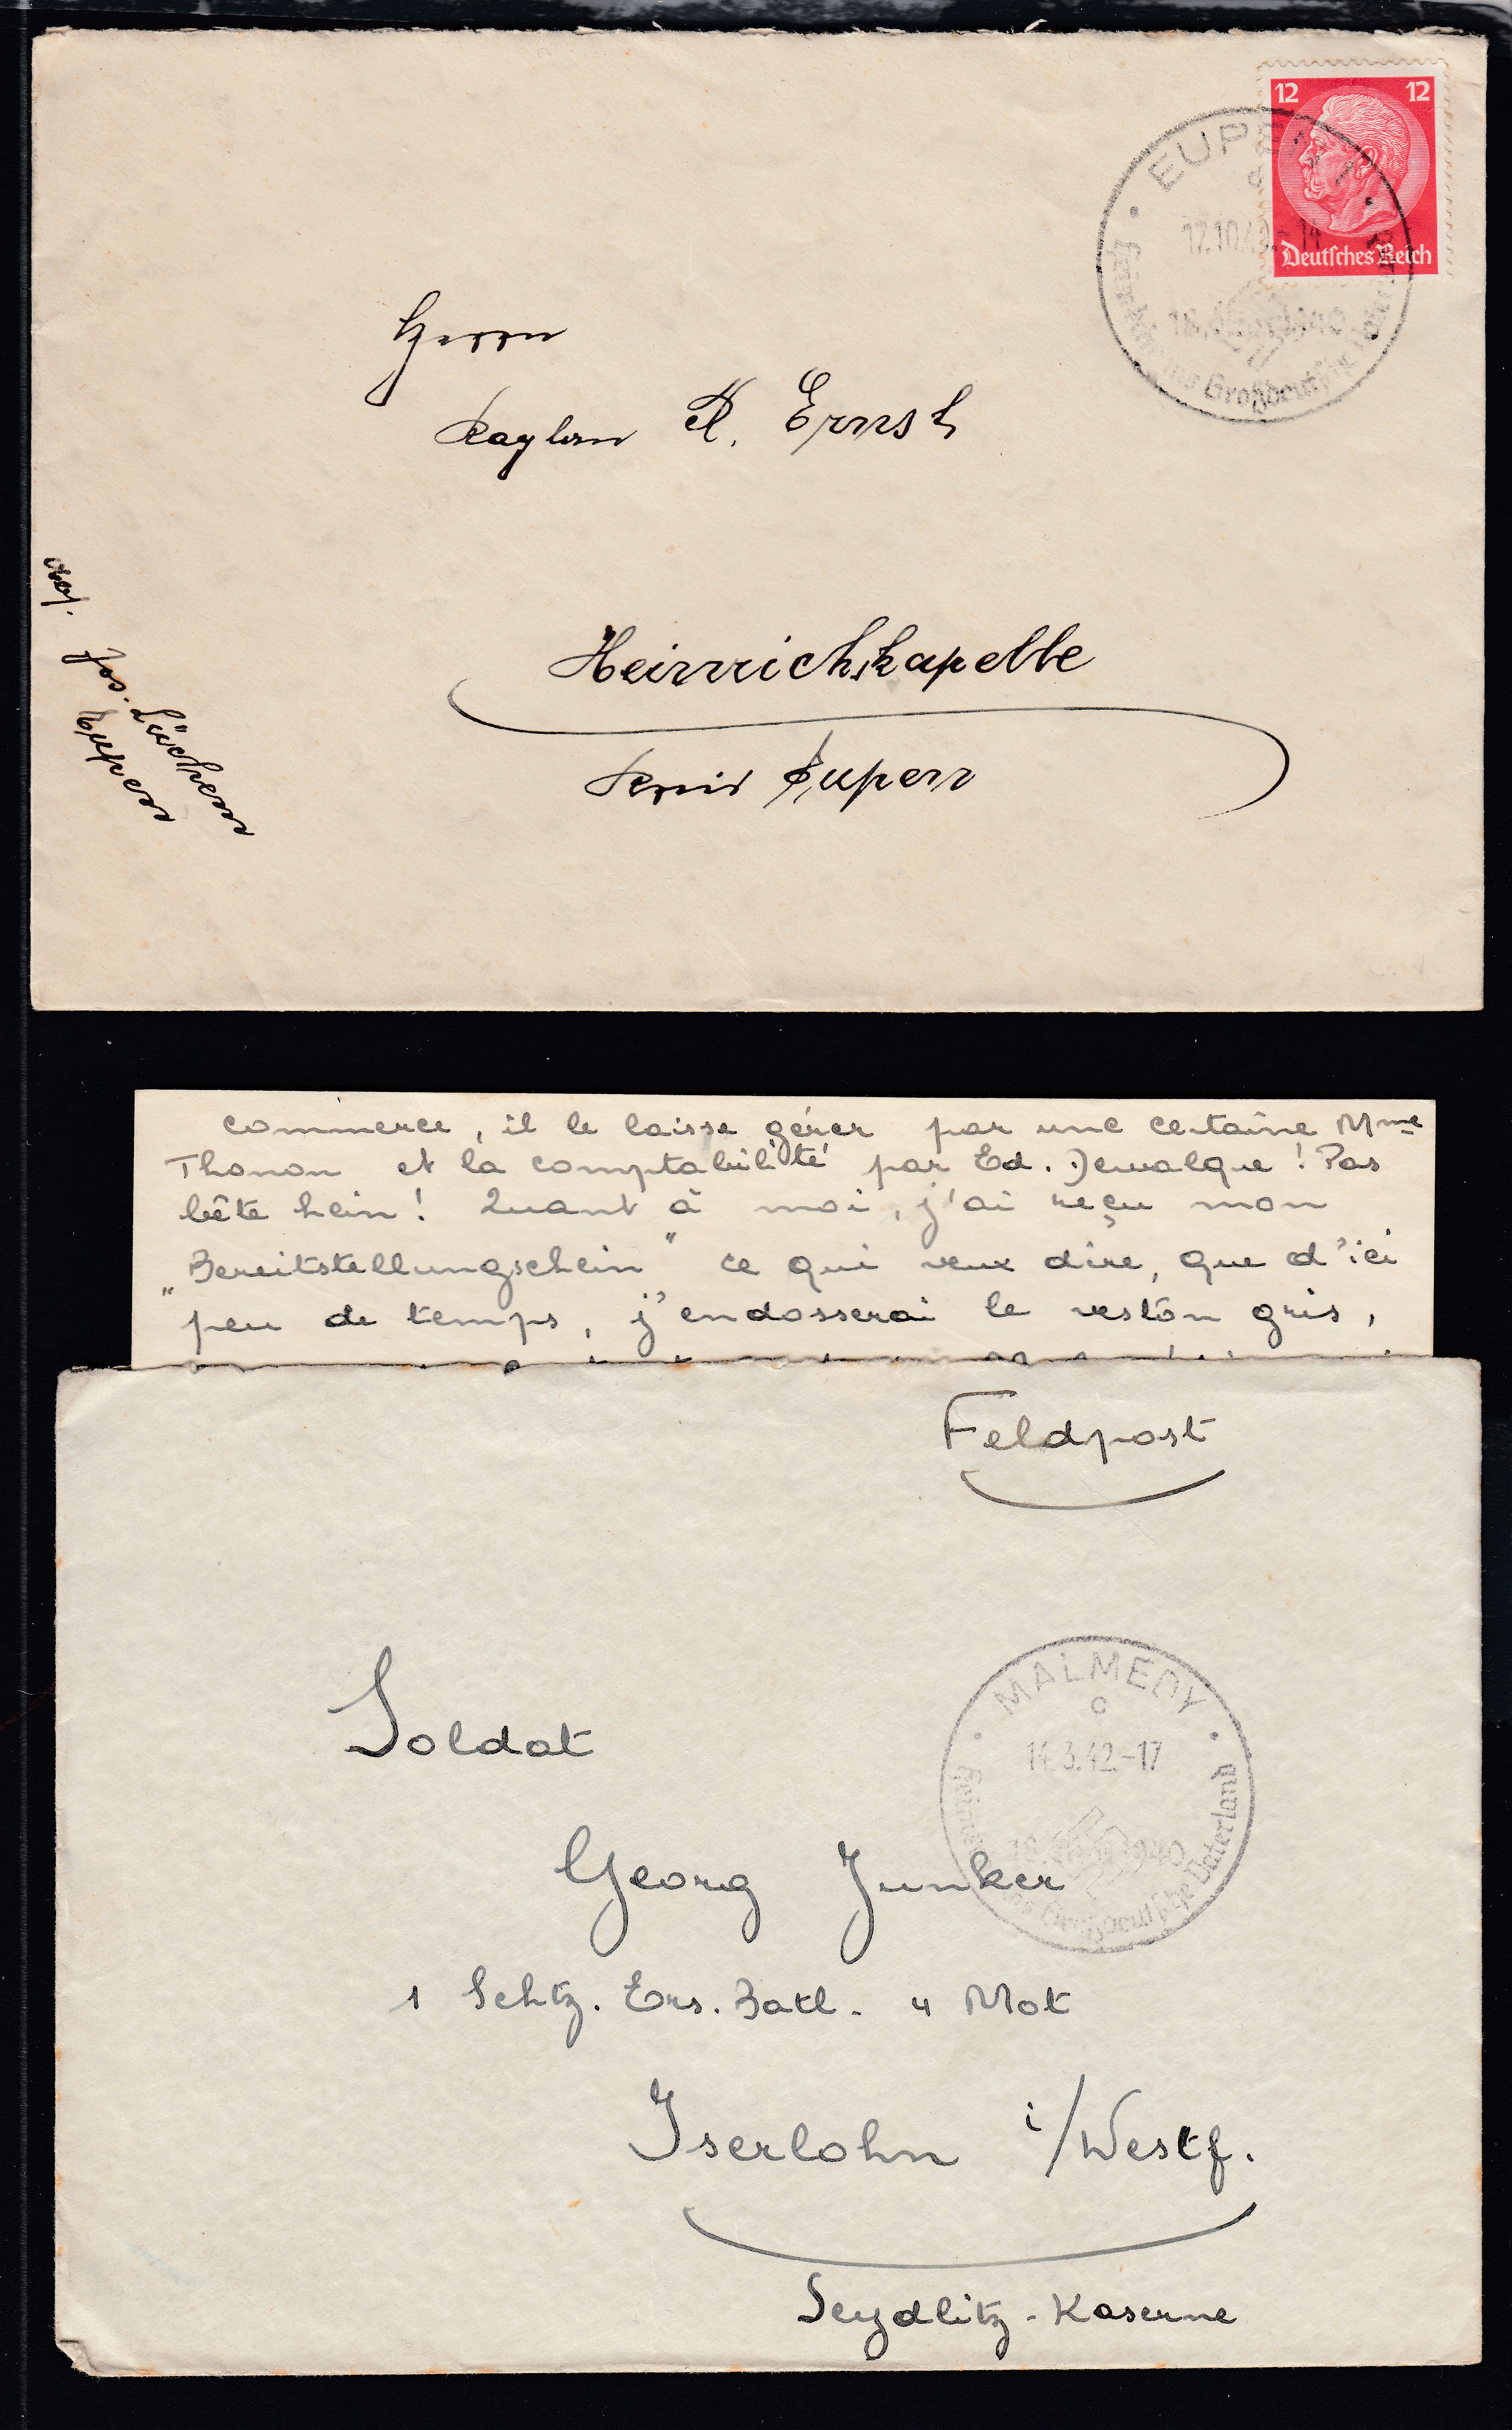 12 12
Deutsches Reich
EUPEN 1
12.10.40.-14
18. 1940
Großdeutsche
Herrn
Kaplan A. Ernst
Heinrichskapelle
Kreis Eupen
Abs. Jos.
Eupen
commerce, il le laisse gérer par une certaine Mme
Thonon et la comptabilité par Ed. Dewalque! Pas
bête hein! Quant à moi, j'ai reçu mon
"Bereitstellungschein" ce qui veux dire, que d'ici
peu de temps, j'endosserai le veston gris,
Feldpost
MALMEDY
c
14.3.42.-17
18. 1940
ins Großdeutsche Vaterland
Soldat
Georg Junker
1 Schtz. Ers. Batl. 4 Mot
Iserlohn i/Westf.
Seydlitz-Kaserne